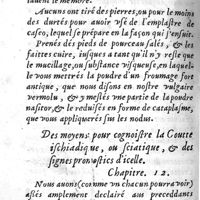 uent le membre.
Aucuns ont tiré des pierres, ou pour le moins
des durtés pour auoir vsé de l'emplastre de
caseo, lequel se prepare en la façon qui s'ensuit.
Prenés des pieds de pourceau salés, & les
faittes cuire, iusques a tant qu'il n'y reste que
le mucillage, ou substance visqueuse, en laquel-
le vous mettrés la poudre d'un froumage fort
antique, que nous disons en nostre vulgaire
vermolu, & y meslés vne partie de la poudre
nasitor, & le reduisés en forme de cataplasme,
que vous appliquerés sur les nodus.
Des moyens pour cognoistre la Goutte
ischiadique, ou sciatique, & des
signes pronostics d'icelle.
Chapitre. 12.
Nous auons (comme vn chacun pourra voir)
assés amplement declaré aux preceddants